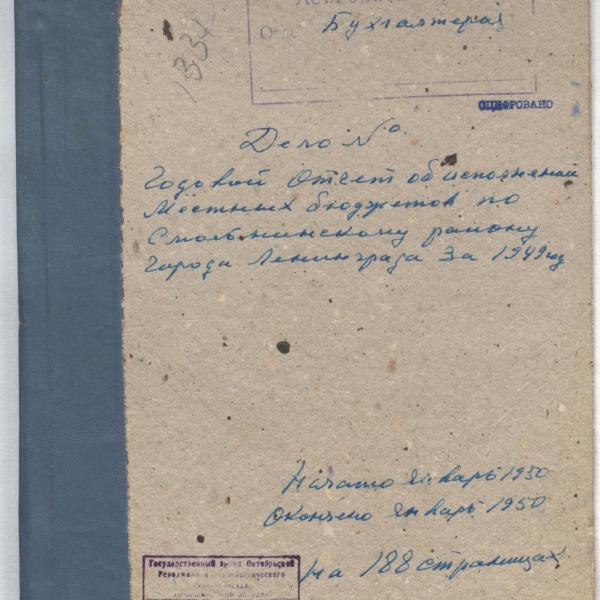 1334
Бухгалтерия
ОЦИФРОВАНО
Дело №
Годовой Отчет об исполнении
Местных бюджетов по
Смольнинскому району
города Ленинграда за 1949 год
Начато Январь 1950
Окончено Январь 1950
на 188 страницах
Государственный Архив Октябрьской
Революции и